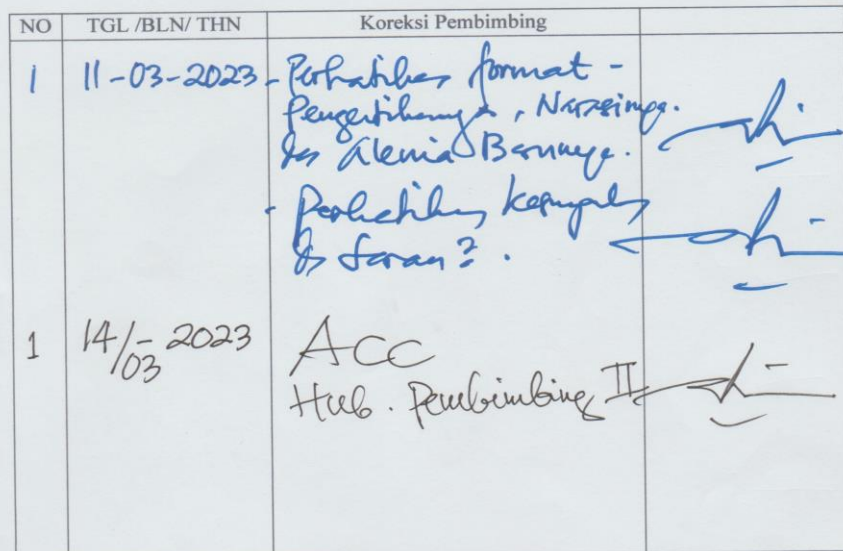 NO TGL /BLN/ THN Koreksi Pembimbing
1 11-03-2023 - Perhatikan format -
Pengetikannya, Narasinya.
dan Alenia Barunya.
- Perhatikan Kesimpulan
dan Saran?.
1 14/03-2023 ACC
Hub. Pembimbing II